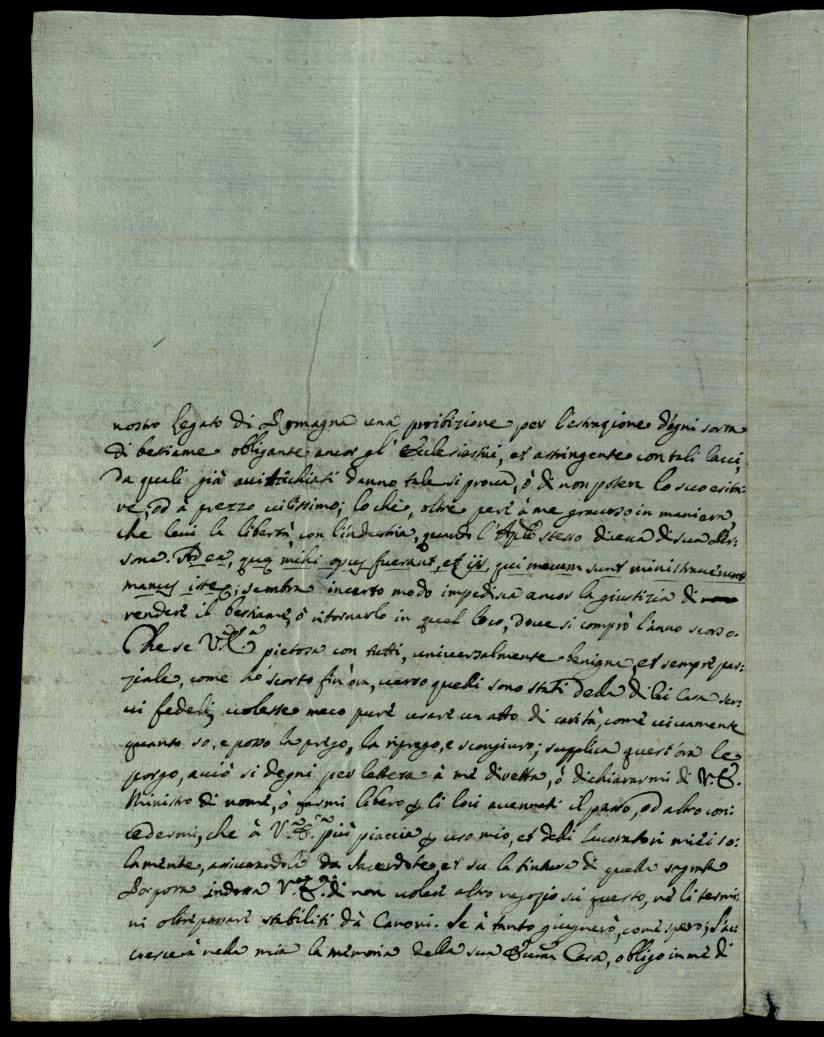 nostro Legato di Romagna una proibizione per l'estrazione d'ogni sorta
di bestiame obligante ancor gl'Ecclesiastici, et astringente con tali lacci,
da quali già avitichiati danno tale si prova, ò di non potere lo suo esita:
re, od à prezzo vilissimo; lo che, oltre però à me gravoso in maniera,
che levi la libertà, con l'industria, quando l'Aplo stesso diceva di sua Per:
sona. Ad ea, quę mihi opus fuerant, et ijs, qui mecum sunt ministraverunt
manus istę; sembra in certo modo impedisca ancor la giustizia di
rendere il bestiame, ò ritornarlo in quel loco, dove si comprò l'anno scorso.
Che se V. Em.a pietosa con tutti, universalmente benigna, et sempre par:
ziale, come hò scorto fin'ora, verso quelli sono stati della di lei Casa ser:
vi fedeli, volesse meco pure usare un atto di carità, come vivamente
quanto so, e posso la prego, la riprego, e scongiuro; supplica quest'ora le
porgo, acciò si degni per lettera à mè diretta, ò dichiararmi di V. E.
Ministro di nome, ò farmi libero per li loci avenuti il passo, od altro con:
cedermi, che à V. Em.a più piaccia per uso mio, et delli lavoratori miei so:
lamente, assicurandola da Sacerdote, et su la tintura di quella sagrata
Porpora indossa V. Em.a di non voler altro negozio su questo, nè li termi:
ni oltrepassare stabiliti dà Canoni. Se à tanto giugnerò, come spero; s'ac:
crescerà nella mia la memoria della sua Eccma Casa, obligo in mè di